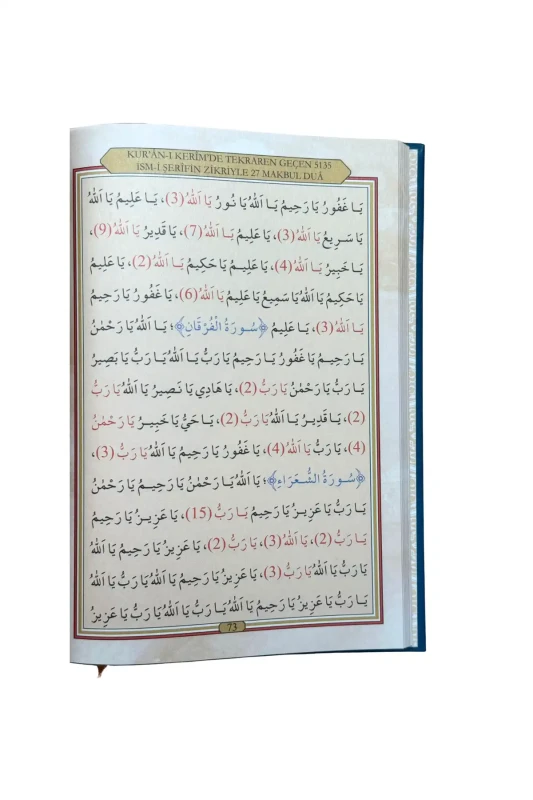 KUR'ÂN-I KERİM'DE TEKRÂREN GEÇEN 5135
İSM-İ ŞERİFİN ZİKRİYLE 27 MAKBUL DUÂ
يَا غَفُورُ يَا رَحِيمُ يَا اَللّٰهُ يَا نُورُ يَا اَللّٰهُ (3)، يَا عَلِيمُ يَا اَللّٰهُ
يَا سَرِيعُ يَا اَللّٰهُ (3)، يَا عَلِيمُ يَا اَللّٰهُ (7)، يَا قَدِيرُ يَا اَللّٰهُ (9)،
يَا خَبِيرُ يَا اَللّٰهُ (4)، يَا عَلِيمُ يَا حَكِيمُ يَا اَللّٰهُ (2)، يَا عَلِيمُ
يَا حَكِيمُ يَا اَللّٰهُ يَا سَمِيعُ يَا عَلِيمُ يَا اَللّٰهُ (6)، يَا غَفُورُ يَا رَحِيمُ
يَا اَللّٰهُ (3)، يَا عَلِيمُ ﴿سُورَةُ الْفُرْقَانِ﴾؛ يَا اَللّٰهُ يَا رَحْمٰنُ
يَا رَحِيمُ يَا غَفُورُ يَا رَحِيمُ يَا رَبُّ يَا اَللّٰهُ يَا رَبُّ يَا بَصِيرُ
يَا رَبُّ يَا رَحْمٰنُ يَا رَبُّ (2)، يَا هَادِي يَا نَصِيرُ يَا اَللّٰهُ يَا رَبُّ
(2)، يَا قَدِيرُ يَا اَللّٰهُ يَا رَبُّ (2)، يَا حَيُّ يَا خَبِيرُ يَا رَحْمٰنُ
(4)، يَا رَبُّ يَا اَللّٰهُ (4)، يَا غَفُورُ يَا رَحِيمُ يَا اَللّٰهُ يَا رَبُّ (3)،
﴿سُورَةُ الشُّعَرَاءِ﴾؛ يَا اَللّٰهُ يَا رَحْمٰنُ يَا رَحِيمُ يَا رَحْمٰنُ
يَا رَبُّ يَا عَزِيزُ يَا رَحِيمُ يَا رَبُّ (15)، يَا عَزِيزُ يَا رَحِيمُ
يَا رَبُّ (2)، يَا اَللّٰهُ (3)، يَا رَبُّ (2)، يَا عَزِيزُ يَا رَحِيمُ يَا اَللّٰهُ
يَا رَبُّ يَا اَللّٰهُ يَا رَبُّ (3)، يَا عَزِيزُ يَا رَحِيمُ يَا اَللّٰهُ يَا رَبُّ يَا اَللّٰهُ
يَا رَبُّ يَا عَزِيزُ يَا رَحِيمُ يَا اَللّٰهُ يَا رَبُّ يَا اَللّٰهُ يَا رَبُّ يَا عَزِيزُ
73